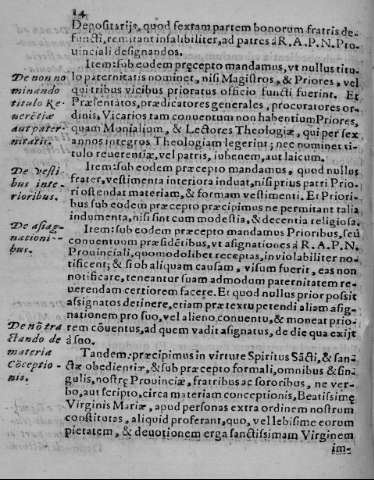 14
Depositarijs, quod sextam partem bonorum fratris de-
functi, remittant infalibiliter, ad patres à R. A. P. N. Pro-
uinciali designandos.
Item: sub eodem præcepto mandamus, vt nullus titu-
lo paternitatis nominet, nisi Magistros, & Priores, vel
qui tribus vicibus prioratus officio functi fuerint. Et
Præsentatos, prædicatores generales, procuratores or-
dinis, Vicarios tam conuentum non habentium Priores,
quam Monialium, & Lectores Theologiæ, qui per sex
annos integros Theologiam legerint; nec nominet ti-
tulo reuerentiæ, vel patris, iubenem, aut laicum.
De non no
minando
titulo Re-
uerētiæ
aut pater-
nitatis.
Item: sub eodem præcepto mandamus, quod nullus
frater, vestimenta interiora induat, nisi prius patri Prio-
ri ostendat materiam, & formam vestimenti. Et Priori-
bus sub eodem præcepto præcipimus ne permittant talia
indumenta, nisi sint cum modestia, & decentia religiosa.
De vesti
bus inte-
rioribus.
Item: sub eodem præcepto mandamus Prioribus, seù
conuentuum præsidētibus, vt asignationes à R. A. P. N.
Prouinciali, quomodolibet receptas, inviolabiliter no-
tificent; & si ob aliquam causam, visum fuerit, eas non
notificare, teneantur suam admodum paternitatem re-
uerendam certiorem facere. Et quod nullus prior possit
assignatos detinere, etiam prætextu petendi aliam asig-
nationem pro suo, vel alieno, conuentu, & moneat prio-
rem cōuentus, ad quem vadit asignatus, de die qua exijt
à suo.
De asiag-
nationi-
bus.
Tandem: præcipimus in virtute Spiritus Sācti, & san-
ctæ obedientiæ, & sub præcepto formali, omnibus & sin-
gulis, nostræ Prouinciæ, fratribus ac sororibus, ne ver-
bo, aut scripto, circa materiam conceptionis, Beatissimę
Virginis Mariæ, apud personas extra ordinem nostrum
constitutas, aliquid proferant, quo, vel lebisime eorum
pietatem, & deuotionem erga sanctissimam Virginem
De nō tra
ctando de
materia
Cōceptio-
nis.
im-